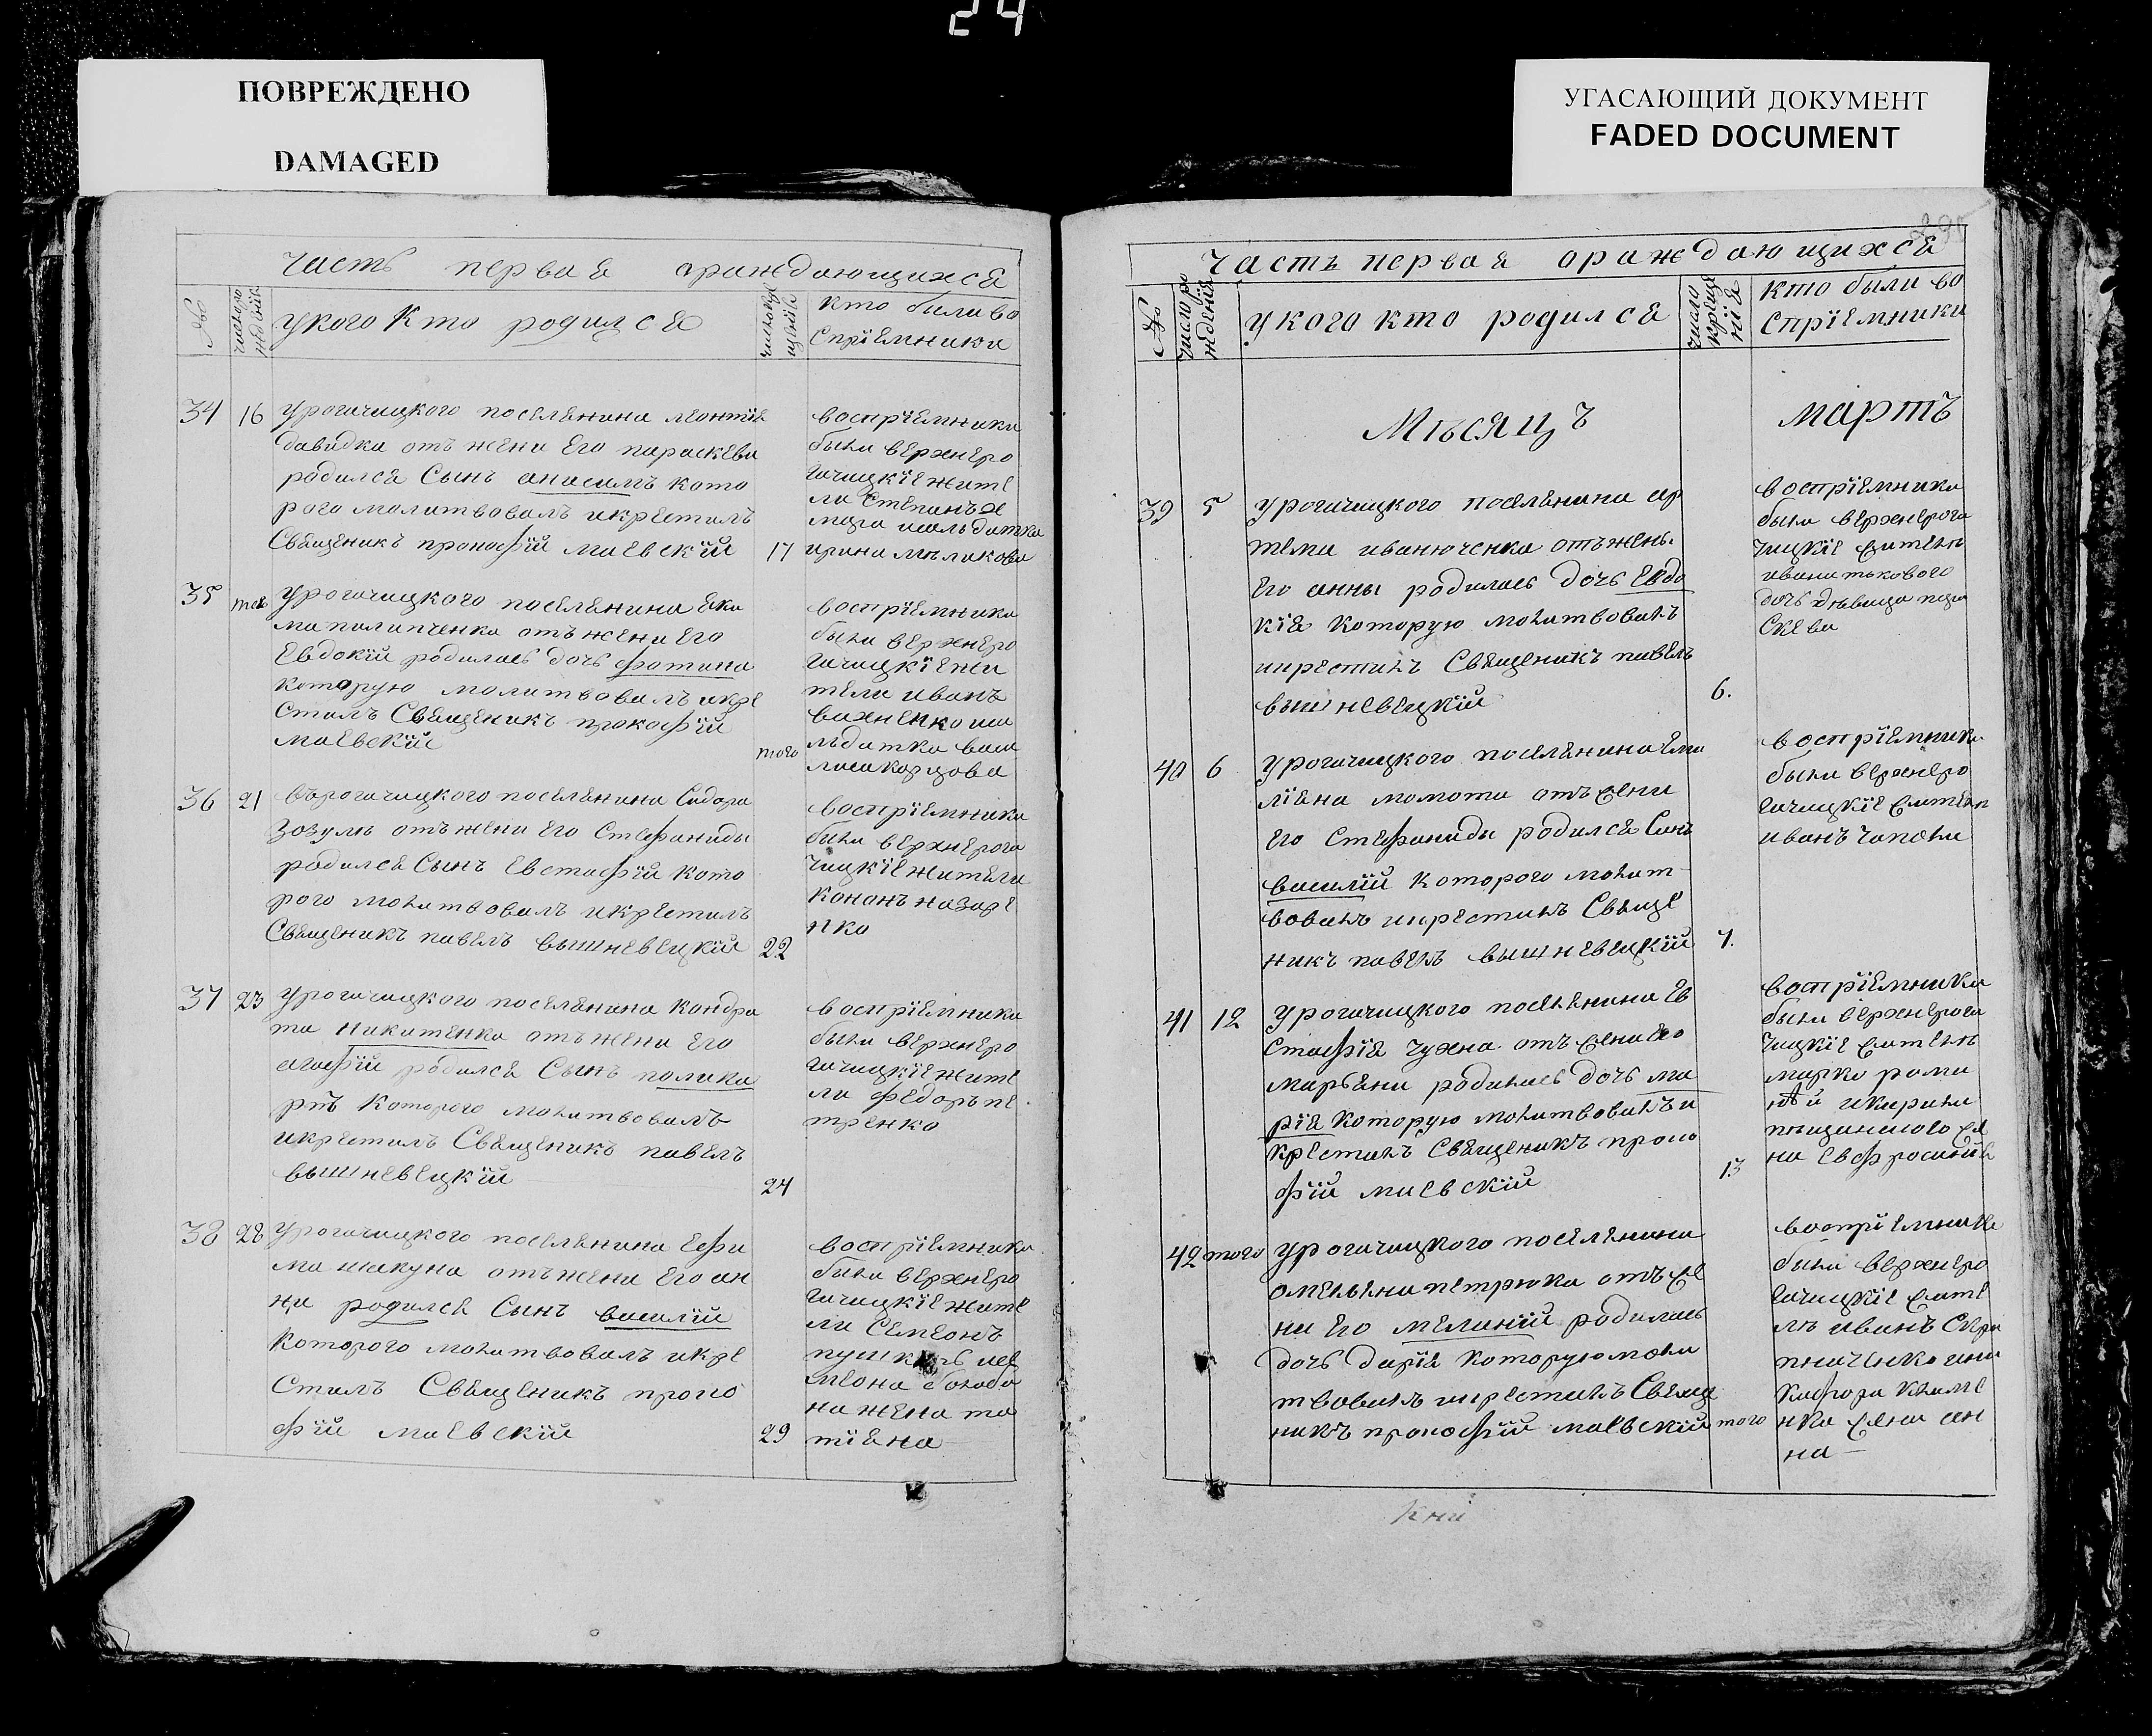 24
ПОВРЕЖДЕНО
DAMAGED
УГАСАЮЩИЙ ДОКУМЕНТ
FADED DOCUMENT
часть первая ораждающихся
№
число ро
ждения
укого кто родился
кто были во
спріемники
34 16
урогачицкого поселянина леонтія
давидка отъ жени его параскеви
родился Сынъ анасимъ кото
рого молитвовалъ икрестилъ
Свящ&еникъ прокофій маевскій 17
воспріемники
были верхнеро
гачицкіе жите
ли Степанъ
ирина
35 тое
урогачицкого поселянина яки
ма отъ жени его
Евдокіи родилась дочь фотина
которую молитвовалъ икре
стилъ Священикъ прокофій
маевскій того
воспріемники
были верхнеро
гачицкіе жи
тели иванъ
36 21
върогачицкого поселянина Сидора
Зозулѣ отъ жени его Стефаниды
родился Сынъ Евстафій кото
рого молитвовалъ икрестилъ
Священикъ павелъ вышневецкій 22
воспріемники
были верхнерога
чицкіе жители
кононъ назаре
нко
37 23
урогачицкого поселянина кондра
та никитенка отъ жени его
агафіи родился Сынъ полика
рпъ которого молитвовалъ
икрестилъ Священикъ павелъ
вышневецкій 24
воспріемники
были верхнеро
гачицкіе жите
ли федоръ пе
тренко
38 28
урогачицкого поселянина Ефи
ма шакуна отъ жени его ан
ни родился Сынъ василій
которого молитвовалъ икре
стилъ Священикъ проко
фій маевскій 29
воспріемники
были верхнеро
гачицкіе жите
ли Семеонъ
на жена та
тіяна
часть первая ораждающихся
№
число ро
ждения
укого кто родился
число
креще
нія
кто были во
спріемники
Мѣсяцъ мартъ
39 5
урогачицкого поселянина ар
тема иванюченка отъ жены
его анны родилась дочь Евдо
кія которую молитвовалъ
икрестилъ Священикъ павелъ
вышневецкій 6.
воспріемники
были верхнерога
чицкіе жителѣ
дочь дѣвица пара
скева
40 6
урогачицкого поселянина Еми
ліяна момота отъ жени
его Стефаниды родился Синъ
василій которого молит
вовалъ икрестилъ Свяще
никъ павелъ вышневецкій 7.
воспріемники
были верхнеро
гачицкіе жителѣ
иванъ
41 12
урогачицкого поселянина Ев
стафія чухна отъ жени его
марьяни родилась дочь ма
рія которую молитвовалъ и
крестилъ Священикъ проко
фій маевскій 13
воспріемники
были верхнерога
чицкіе жителѣ
марко рома
на Евфросинія
42 того
урогачицкого поселянина
омельяна петрюка отъ же
ни его меланіи родилась
дочь дарія которую моли
твовалъ икрестилъ Священ
никъ прокофій маевскій того
воспріемники
были верхнеро
гачицкіе жите
лѣ иванъ
нка жена ан
на